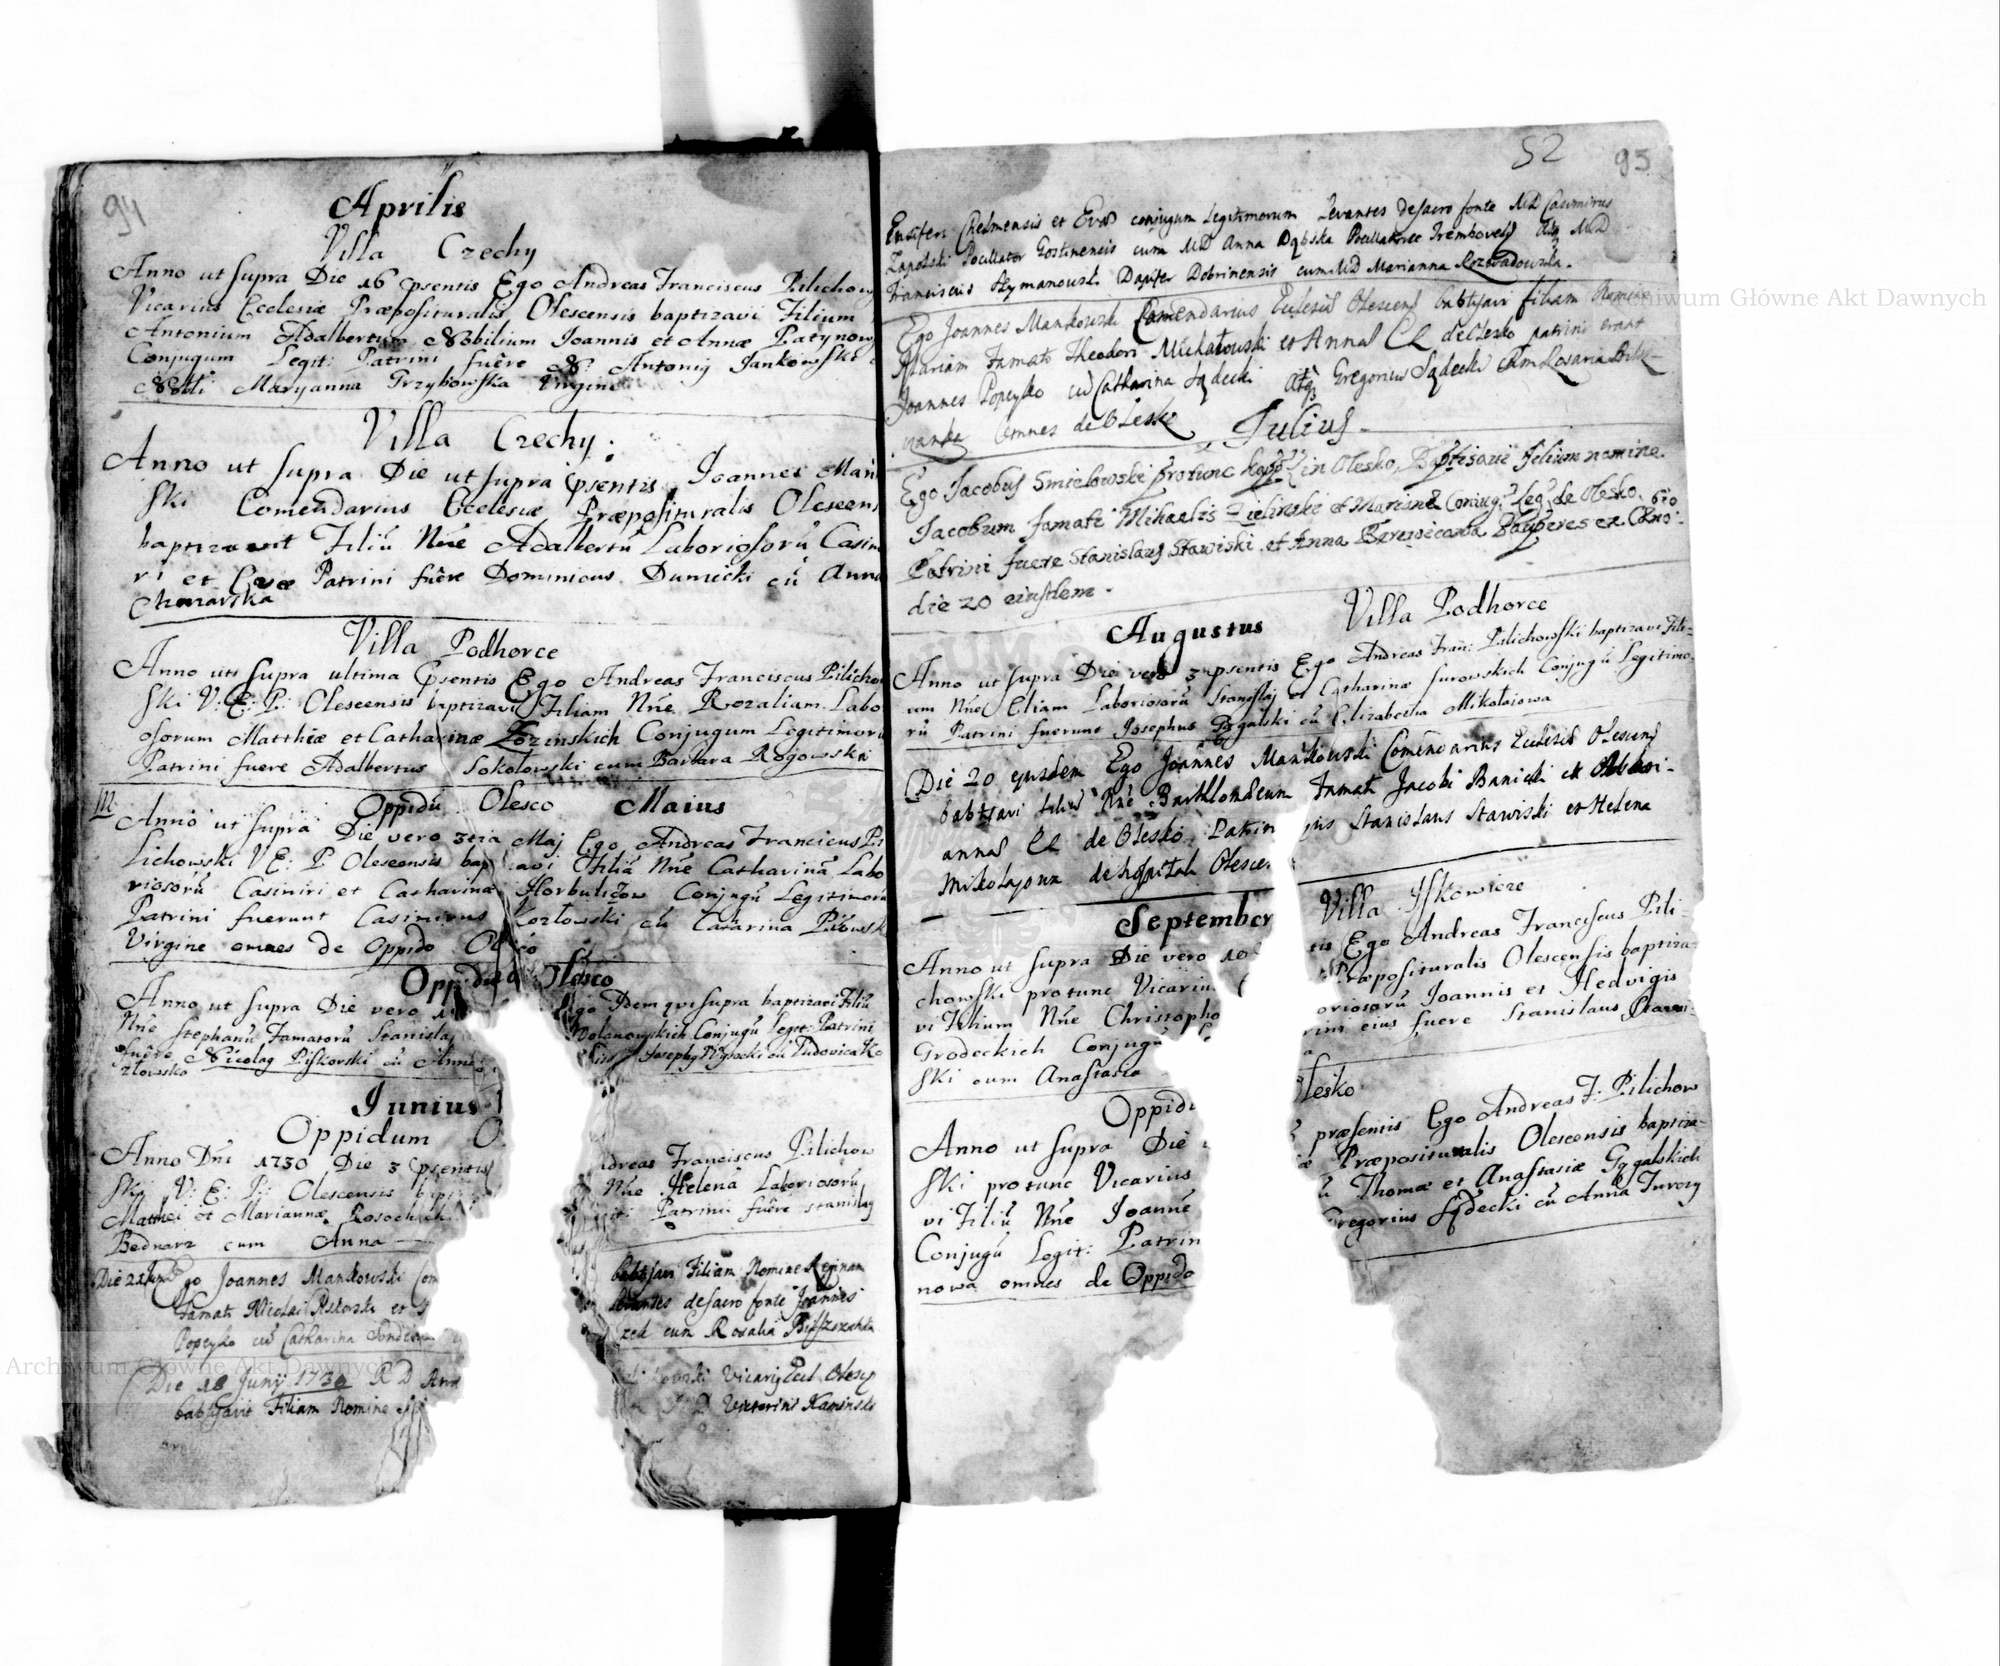 94
Aprilis
Villa Czechy
Anno ut supra Die 16 psentis Ego Andreas Franciscus Pilichow
Vicarius Ecclesiæ Præposituralis Olescensis baptizavi Filium
Antonium Adalbertum Nobilium Ioannis et Annæ Ratynow
Conjugum Legit: Patrini fuêre N: Antonig Jankowski
Nobili Maryanna Grzybowska Virgine
Villa Czechy
Anno ut supra Die ut supra psentis Ioannes Man
ski Comendarius Ecclesiæ Præposituralis Olescens
baptizavit Filiū Nñe Adalbertū Laboriosorū Casim
ri et Evæ Patrini fuêre Dominicus Dumicki cū Anna
Chmarska
Villa Podhorce
Anno uti supra ultima psentis Ego Andreas Franciscus Pilichow
ski V: E: P: Olescensis baptizavi Filiam Nñe Rozaliam Labo
osorum Matthiæ et Catharinæ Lozinskich Conjugum Legitimoru
Patrini fuere Adalbertus Sokolowski cum Barbara Rogowska
M
Oppidū Olesco Maius
Anno ut supra Die vero 3tia Maj Ego Andreas Francicus Pi
lichowski V E: P. Olescensis bap avi Filiā Nñe Catharinā Labo
riosorū Casimiri et Catharinæ Horbulizow Conjugū Legitimorū
Patrini fuerunt Casimirus Kozłowski cū Catarina Piwowsk
Virgine omnes de Oppido Ol co
Oppidū Olesco
Anno ut supra Die vero Ego Idem qui supra baptizavi Filiū
Nñe Stephanū Famatorū Stanislaj Wolanowskich Conjugū Legit: Patrini
fuêre Nicolag Piskorski cū Anna Josephg Wysocki cū Ludovica Ko
złowska
Junius
Oppidum O
Anno Dñi 1730 Die 3 psentis dreas Franciscus Pilichow
ski V: E: P: Olescensis bapt Nñe Helenā Laboriosorū
Matthei et Mariannæ Rosochich git: Patrini fuêre stanislag
Bednarz cum Anna
Die 22 Juny Ego Joannes Mankowski Com babtjavi Filiam Nomine Reginam
Famati Nicolai et levantes desacro fonte Joannes
Popeyko cū Catharina zek cum Rosalia
Die 18 Junij 1730 R D And Vicarig Ecl Olesg
babtjavit Filiam Nomine D Victorini Kaminski
52 95
Ensiferi Chelmensis et Evæ conjugum Legitimorum Levantes desacro fonte MD Casimirus
Zapolski Pocillator Gostinensis cum MD Anna Dąbska Pocillatrice Trembovelg atq MD
Franciscus Szymanowski Dapifer Dobrinensis cum MD Marianna Rozwadowska.
Ego Joannes Mankowski Comendarius Eclesiæ Olescens babtjavi filiam Nomine
Mariam Famati Theodori Michałowski et Annæ CL de Olesko patrini erant
Joannes Popeyko cū Catharina Sądecki atq Gregorius Sądecki cum Rosaria
omnes de Olesko
Julius
Ego Jacobus Smielowski protunc in Olesko, Baptisavi Filium nomine
Jacobum famati Mihaelis Zielinski et Mariane Coniug: Leg: de Olesko.
Patrini fuere Stanislaus Stawiski et Anna Pauperes ex
die 20 eiusdem.
Augustus Villa Podhorce
Anno ut supra Die vero 3 psentis Ego Andreas Fran: Pilichowski baptizavi Fili-
am Nñe Eliam Laboriosorū Stanislaj et Catharinæ Surowskich Conjugū Legitimo-
rū Patrini fuerunt Josephus Rygalski cū Elizabetha Mikołaiowa
Die 20 ejusdem Ego Joannes Mankowski Comendarius Eclesiæ Olescens
babtjavi filiū Nñe Bartholomeum Famati Jacobi Banicki et
annæ CL de Olesko Patrin Stanislaus Stawiski et Helena
Mikolajowa de hospitali Olescen
September Villa Iskowice
Anno ut supra Die vero 10 tis Ego Andreas Franciscus Pili-
chowski protunc Vicariu Præposituralis Olescensis baptiza-
vi Filium Nñe Christopho oriosorū Joannis et Hedvigis
Grodeckich Conjugū rini eius fuere Stanislaus
ski cum Anastasia a
Oppidū lesko
Anno ut supra Die præsentis Ego Andreas F: Pilichow
ski protunc Vicarius æ Præposituralis Olescensis baptiza-
vi Filiū Nñe Joannē ū Thomæ et Anastasiæ Gygalskich
Conjugū Legit: Patrin Gregorius Sądecki cū Anna Turczy
nowa omnes de Oppido
Archiwum Główne Akt Dawnych
Archiwum Główne Akt Dawnych